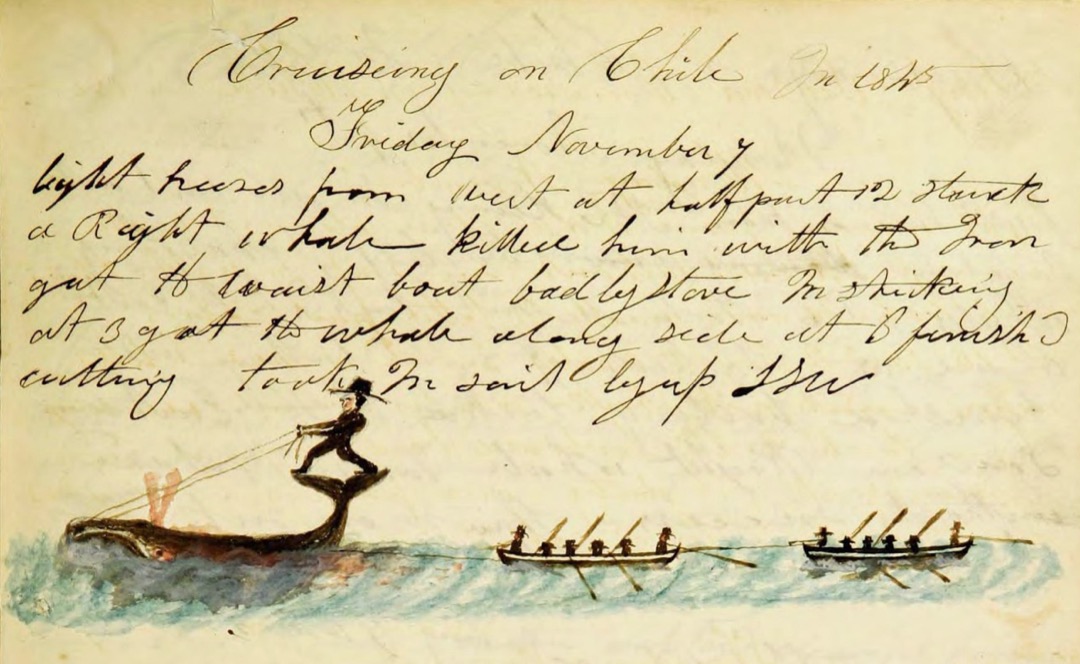 Cruiseing on Chile In 1845
Friday November 7
light breeses from west at halfpast 12 struck
a Right whale killed him with the Iron
got the waist boat badly stove In striking
at 3 got the whale along side at 6 finishd
cutting took In sail SSW